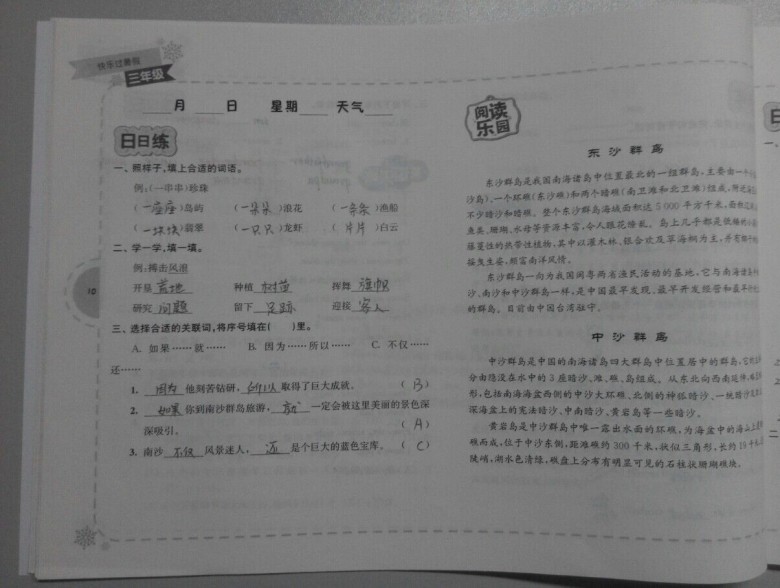 快乐过暑假
三年级
月 日 星期 天气
日日练
一、照样子,填上合适的词语。
例:(一串串)珍珠
(一座座)岛屿 (一朵朵)浪花 (一条条)渔船
(一块块)翡翠 (一只只)龙虾 (片片)白云
二、学一学,填一填。
例:搏击风浪
开垦 荒地 种植 树苗 挥舞 旗帜
研究 问题 留下 足跡 迎接 客人
三、选择合适的关联词,将序号填在( )里。
A. 如果……就…… B. 因为……所以…… C. 不仅……
还……
1. 因为 他刻苦钻研, 所以 取得了巨大成就。 (B)
2. 如果 你到南沙群岛旅游, 就 一定会被这里美丽的景色深
深吸引。 (A)
3. 南沙 不仅 风景迷人, 还 是个巨大的蓝色宝库。 (C)
10
阅读
乐园
东沙群岛
东沙群岛是我国南海诸岛中位置最北的一组群岛,主要由一个
沙岛)、一个环礁(东沙礁)和两个暗礁(南卫滩和北卫滩)组成,附近
不少暗沙和暗礁。整个东沙群岛海域面积达5 000平方千米,
鱼类、珊瑚、水母等资源丰富,令人眼花缭乱。岛上几乎都是低矮的
藤蔓性的热带性植物,其中以灌木林、银合欢及草海桐为主,并有椰子
摇曳生姿,颇富南洋风情。
东沙群岛一向为我国闽粤两省渔民活动的基地,它与南海诸岛
沙、南沙和中沙群岛一样,是中国最早发现、最早开发经营和最早
的群岛。目前由中国台湾驻守。
中沙群岛
中沙群岛是中国的南海诸岛四大群岛中位置居中的群岛,它
分由隐没在水中的3座暗沙、滩、礁、岛组成。从东北向西南延伸,
形,包括南海海盆西侧的中沙大环礁、北侧的神狐暗沙、一统暗沙
深海盆上的宪法暗沙、中南暗沙、黄岩岛等一些暗沙。
黄岩岛是中沙群岛中唯一露出水面的环礁,为海盆中的海山上
礁而成,位于中沙东侧,距滩礁约300千米,状似三角形,长约19千米,
陡峭,湖水色清绿,礁盘上分布有明显可见的石柱状珊瑚礁块。